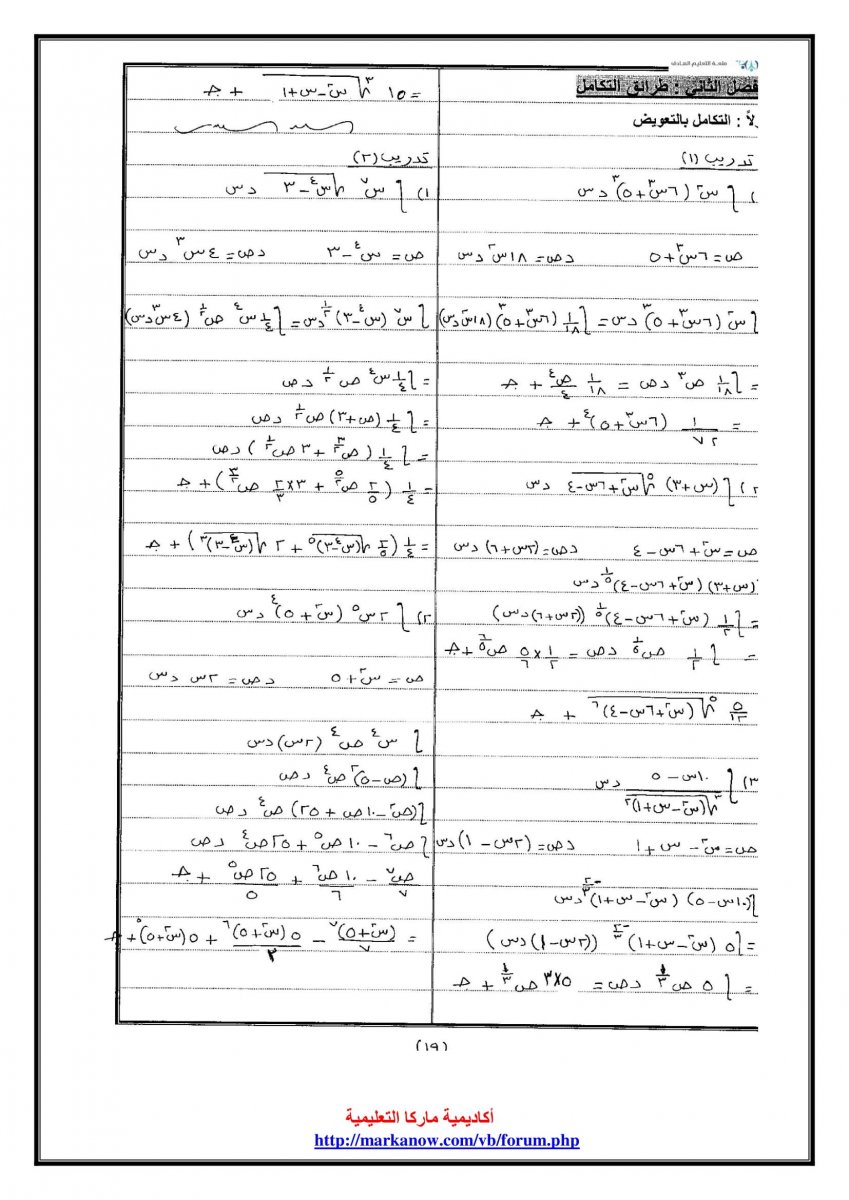 منصة التعليم الهادف
فصل الثاني : طرائق التكامل
لاً : التكامل بالتعويض
تدريب (١)
) ∫ س٢ (٦س٣+٥)٣ دس
ص=٦س٣+٥ دص=١٨س٢ دس
∫س٢ (٦س٣+٥)٣ دس = ∫ ١/١٨ (٦س٣+٥)٣ (١٨س٢ دس)
= ∫ ١/١٨ ص٣ دص = ١/١٨ ص٤/٤ + جـ
= ١/٧٢ (٦س٣+٥)٤ + جـ
٢) ∫ (س+٣) ٥√(س٢+٦س-٤) دس
ص=س٢+٦س-٤ دص=(٢س+٦) دس
(س+٣) (س٢+٦س-٤)١/٥ دس
= ∫ ١/٢ (س٢+٦س-٤)١/٥ ((٢س+٦) دس)
= ∫ ١/٢ ص١/٥ دص = ١/٢ × ٥/٦ ص٦/٥ + جـ
٥/١٢ ٥√(س٢+٦س-٤)٦ + جـ
٣) ∫ (١٠س-٥)/٣√(س٢-س+١)٢ دس
ص=س٢-س+١ دص=(٢س-١) دس
∫(١٠س-٥) (س٢-س+١)-٢/٣ دس
= ∫ ٥ (س٢-س+١)-٢/٣ ((٢س-١) دس)
= ∫ ٥ ص-٢/٣ دص = ٥×٣ ص١/٣ + جـ
= ١٥ ٣√(س٢-س+١) + جـ
تدريب (٢)
١) ∫ س٧ √(س٤-٣) دس
ص=س٤-٣ دص=٤س٣ دس
∫ س٧ (س٤-٣)١/٢ دس = ∫ ١/٤ س٤ ص١/٢ (٤س٣ دس)
= ∫ ١/٤ س٤ ص١/٢ دص
= ∫ ١/٤ (ص+٣) ص١/٢ دص
= ∫ ١/٤ (ص٣/٢ + ٣ ص١/٢) دص
= ١/٤ (٢/٥ ص٥/٢ + ٣×٢/٣ ص٣/٢) + جـ
= ١/٤ (٢/٥ √(س٤-٣)٥ + ٢ √(س٤-٣)٣) + جـ
٢) ∫ ٢س٥ (س٢+٥)٤ دس
ص=س٢+٥ دص=٢س دس
∫ س٤ ص٤ (٢س) دس
∫ (ص-٥)٢ ص٤ دص
∫ (ص٢-١٠ص+٢٥) ص٤ دص
∫ ص٦ - ١٠ص٥ + ٢٥ص٤ دص
ص٧/٧ - ١٠ص٦/٦ + ٢٥ص٥/٥ + جـ
= (س٢+٥)٧/٧ - ٥(س٢+٥)٦/٣ + ٥(س٢+٥)٥ + جـ
(١٩)
أكاديمية ماركا التعليمية
http://markanow.com/vb/forum.php